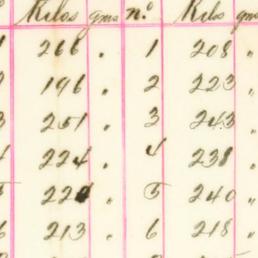 o Kilos gms n.o Kilos gms
1 266 " 1 208 "
2 196 " 2 223 "
3 251 " 3 243 "
4 224 " 4 238 "
5 222 " 5 240 "
6 213 " 6 218 "